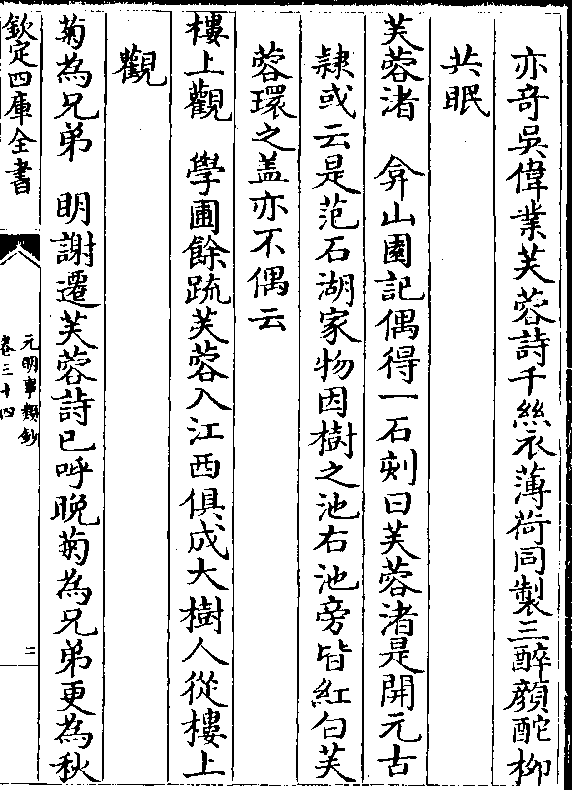 亦奇吳偉業芙蓉詩千絲衣薄荷同製三醉顏酡柳
共眠
芙蓉渚　弇山園記偶得一石刻曰芙蓉渚是開元古
隸或云是范石湖家物因樹之池右池旁皆紅白芙
蓉環之盖亦不偶云
樓上觀　學圃餘疏芙蓉入江西俱成大樹人從樓上
觀
菊為兄弟　明謝遷芙蓉詩已呼晚菊為兄弟更為秋
欽定四庫全書
元明事類鈔
卷三十四
二